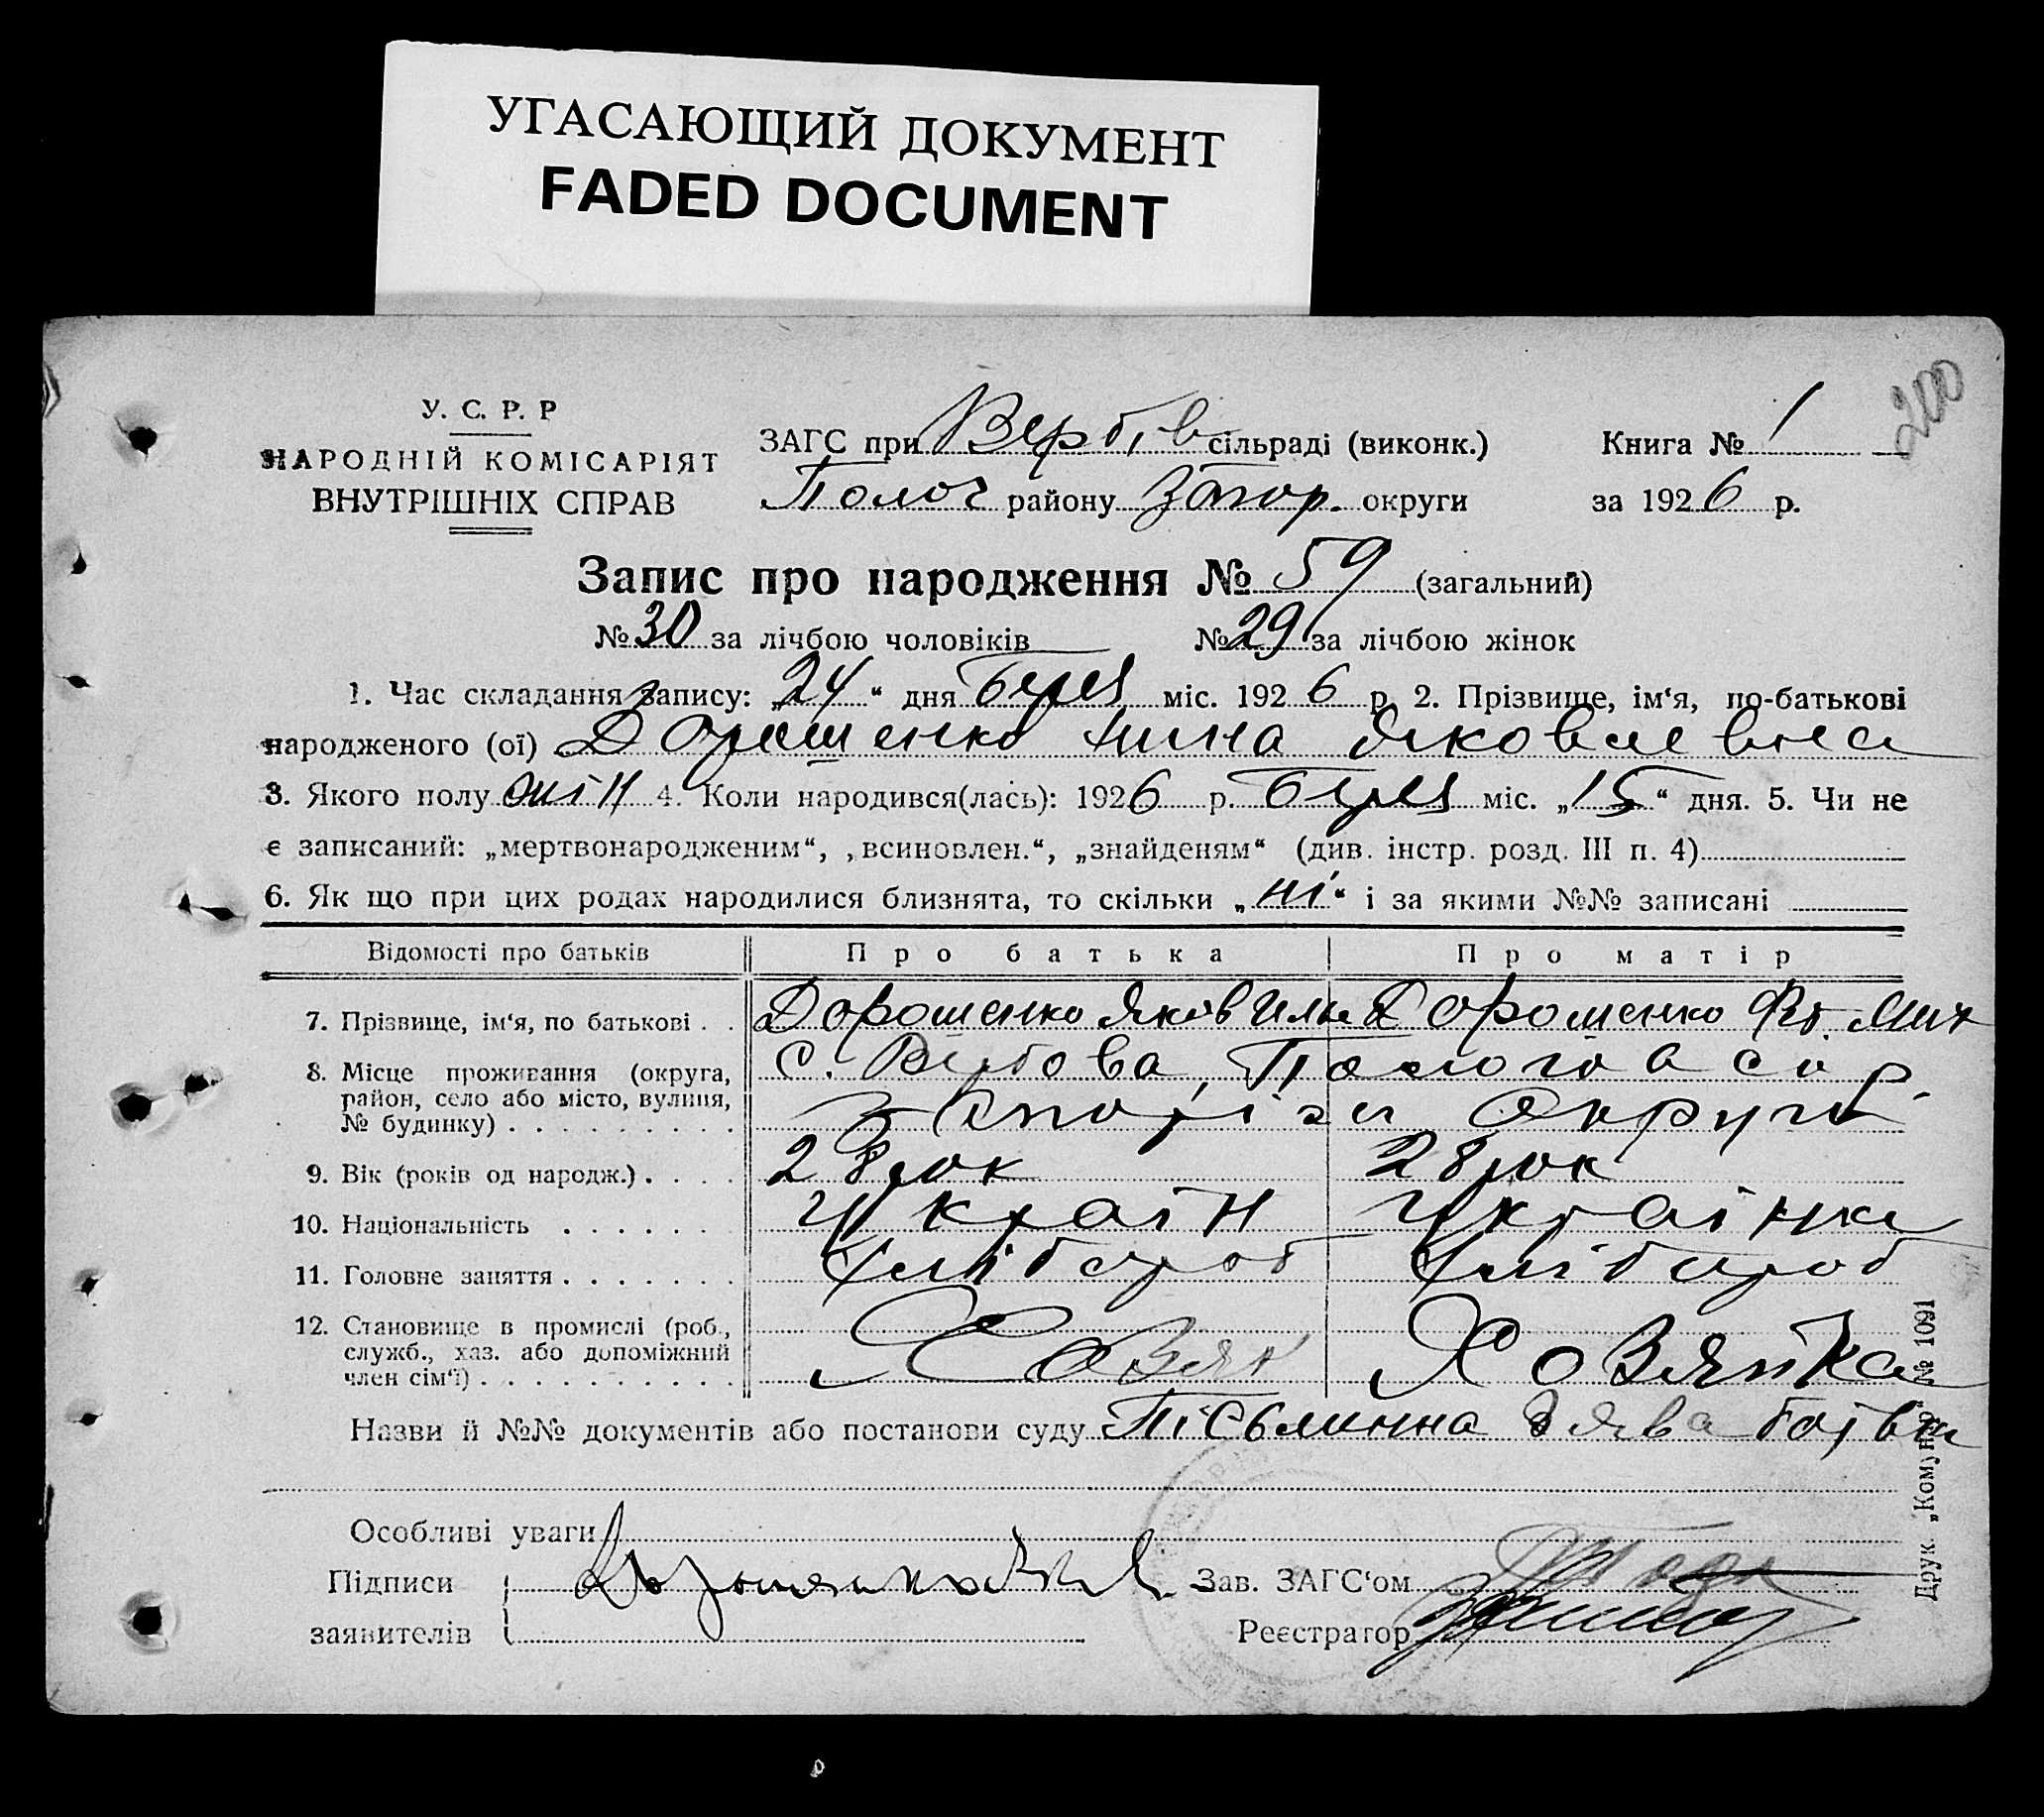 УГАСАЮЩИЙ ДОКУМЕНТ
FADED DOCUMENT
200
У. С. Р. Р
НАРОДНІЙ КОМІСАРІЯТ
ВНУТРІШНІХ СПРАВ
ЗАГС при Вербів сільраді (виконк.) Книга № 1
Полог району Запор. округи за 1926 р.
Запис про народження № 59 (загальний)
№ 30 за лічбою чоловіків № 29 за лічбою жінок
1. Час складання запису: „24“ дня Берез міс. 1926 р. 2. Прізвище, ім‘я, по-батькові
народженого (ої) Дорошенко Нина Яковлевна
3. Якого полу жін 4. Коли народився(лась): 1926 р. Берез міс. „15“ дня. 5. Чи не
є записаний: „мертвонародженим“, „всиновлен.“, „знайденям“ (див. інстр. розд. III п. 4)
6. Як що при цих родах народилися близнята, то скільки „ні“ і за якими №№ записані
Відомості про батьків Про батька Про матір
7. Прізвище, ім‘я, по батькові . . Дорошенко Яков Дорошенко
8. Місце проживання (округа, район, село або місто, вулиця, № будинку) . . . . . . . . . с. Вербова,
округи
9. Вік (років од народж.) . . . . 28 рок 28 рок
10. Національність . . . . . . Україн Українка
11. Головне заняття . . . . . . . Хлібороб Хлібороб
12. Становище в промислі (роб., служб., хаз. або допоміжний член сім‘ї) . . . . . . . . . . Хозяїн Хозяйка
Назви й №№ документів або постанови суду Пісьминна заява
Особливі уваги
Підписи Дорошенко Зав. ЗАГС‘ом
заявителів Реєстратор
Друк. „Комун № 1091